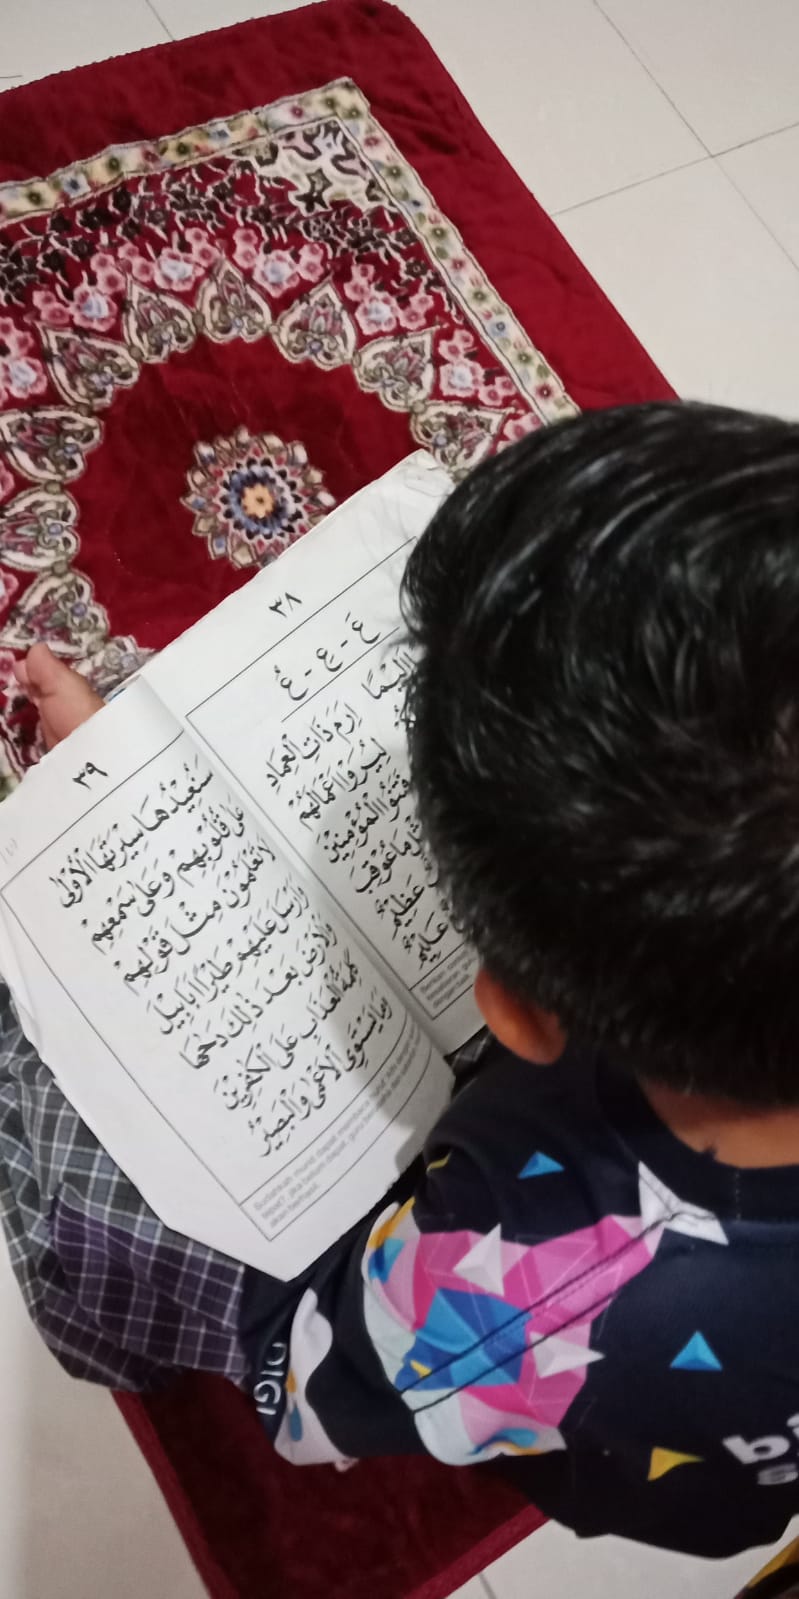 ٣٨
عَ - عِ - عُ
اِرَمَ ذَاتِ الْعِمَادِ
لِيُرَوْا اَعْمَالَهُمْ
فَتَنُوا الْمُؤْمِنِيْنَ
مَا عُوْقِبَ
عَظِيْمٌ
عَلِيْمٌ
٣٩
سَنُعِيْدُهَا سِيْرَتَهَا الْاُوْلٰى
عَلٰى قُلُوْبِهِمْ وَعَلٰى سَمْعِهِمْ
لَا تَعْلَمُوْنَ مِثْلَ قَوْلِهِمْ
وَاَرْسَلَ عَلَيْهِمْ طَيْرًا اَبَابِيْلَ
وَالْاَرْضَ بَعْدَ ذٰلِكَ دَحٰىهَا
كَلِمَةُ الْعَذَابِ عَلَى الْكٰفِرِيْنَ
وَمَا يَسْتَوِى الْاَعْمٰى وَالْبَصِيْرُ
Sudahkah murid dapat membaca
tepat?, jika belum dapat, guru
akan berhasil.
DIGI